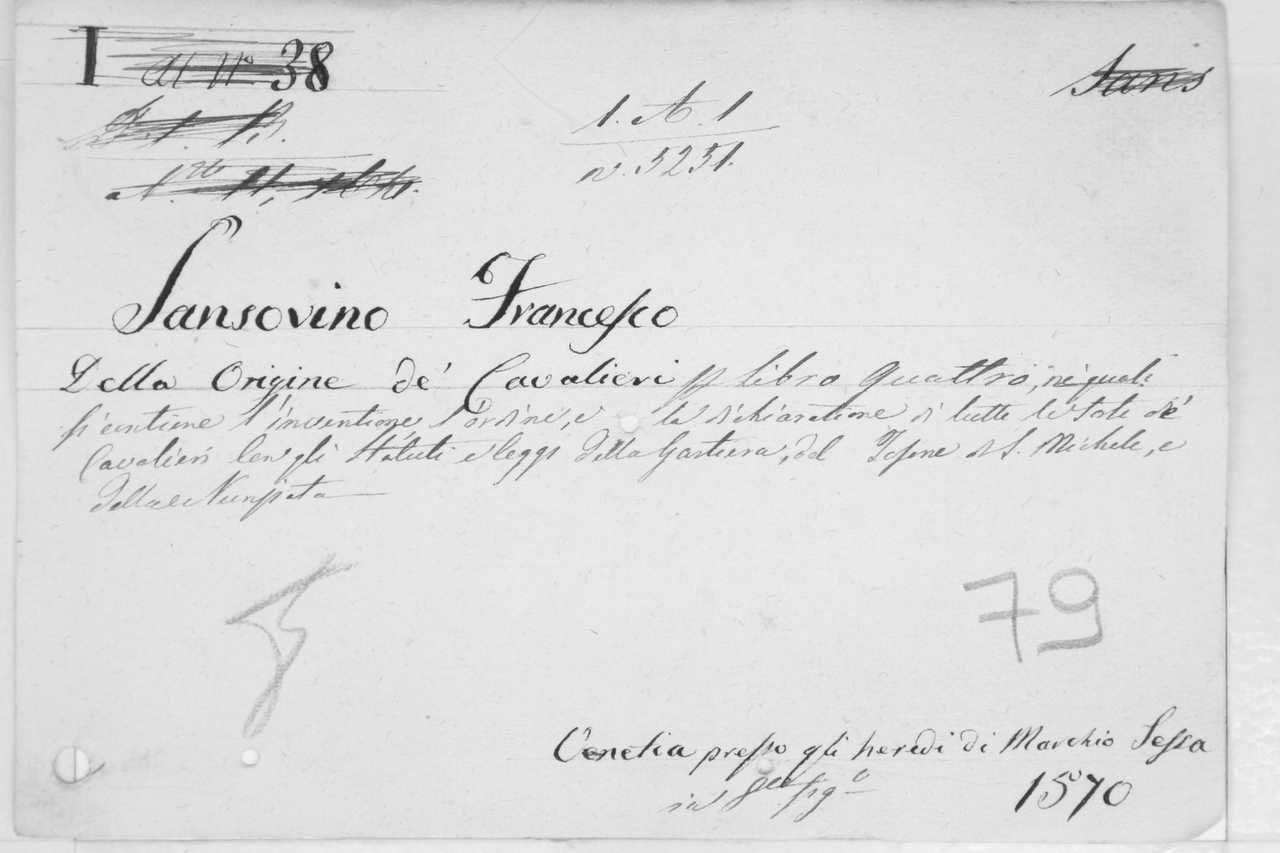 I al N° 38
Sans
1. A. 1
n. 5251.
Sansovino Francesco
Della Origine de' Cavalieri libro quattro, ne quali
si contiene l'inventione l'ordine, e la dichiaratione di tutte le sorti de'
Cavalieri con gli Statuti e leggi della Gartiera, del Tosone di S. Michele, e
della Nunsiata
79
Venetia presso gli heredi di Marchio Sessa
in 8vo fig°
1570